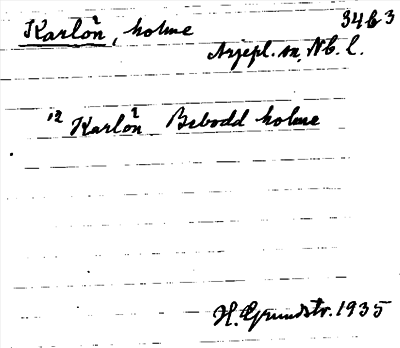 Karlön, holme 34b3
Arjepl. sn, Nb. l.
12 Karlön Bebodd holme
H. Grundstr. 1935